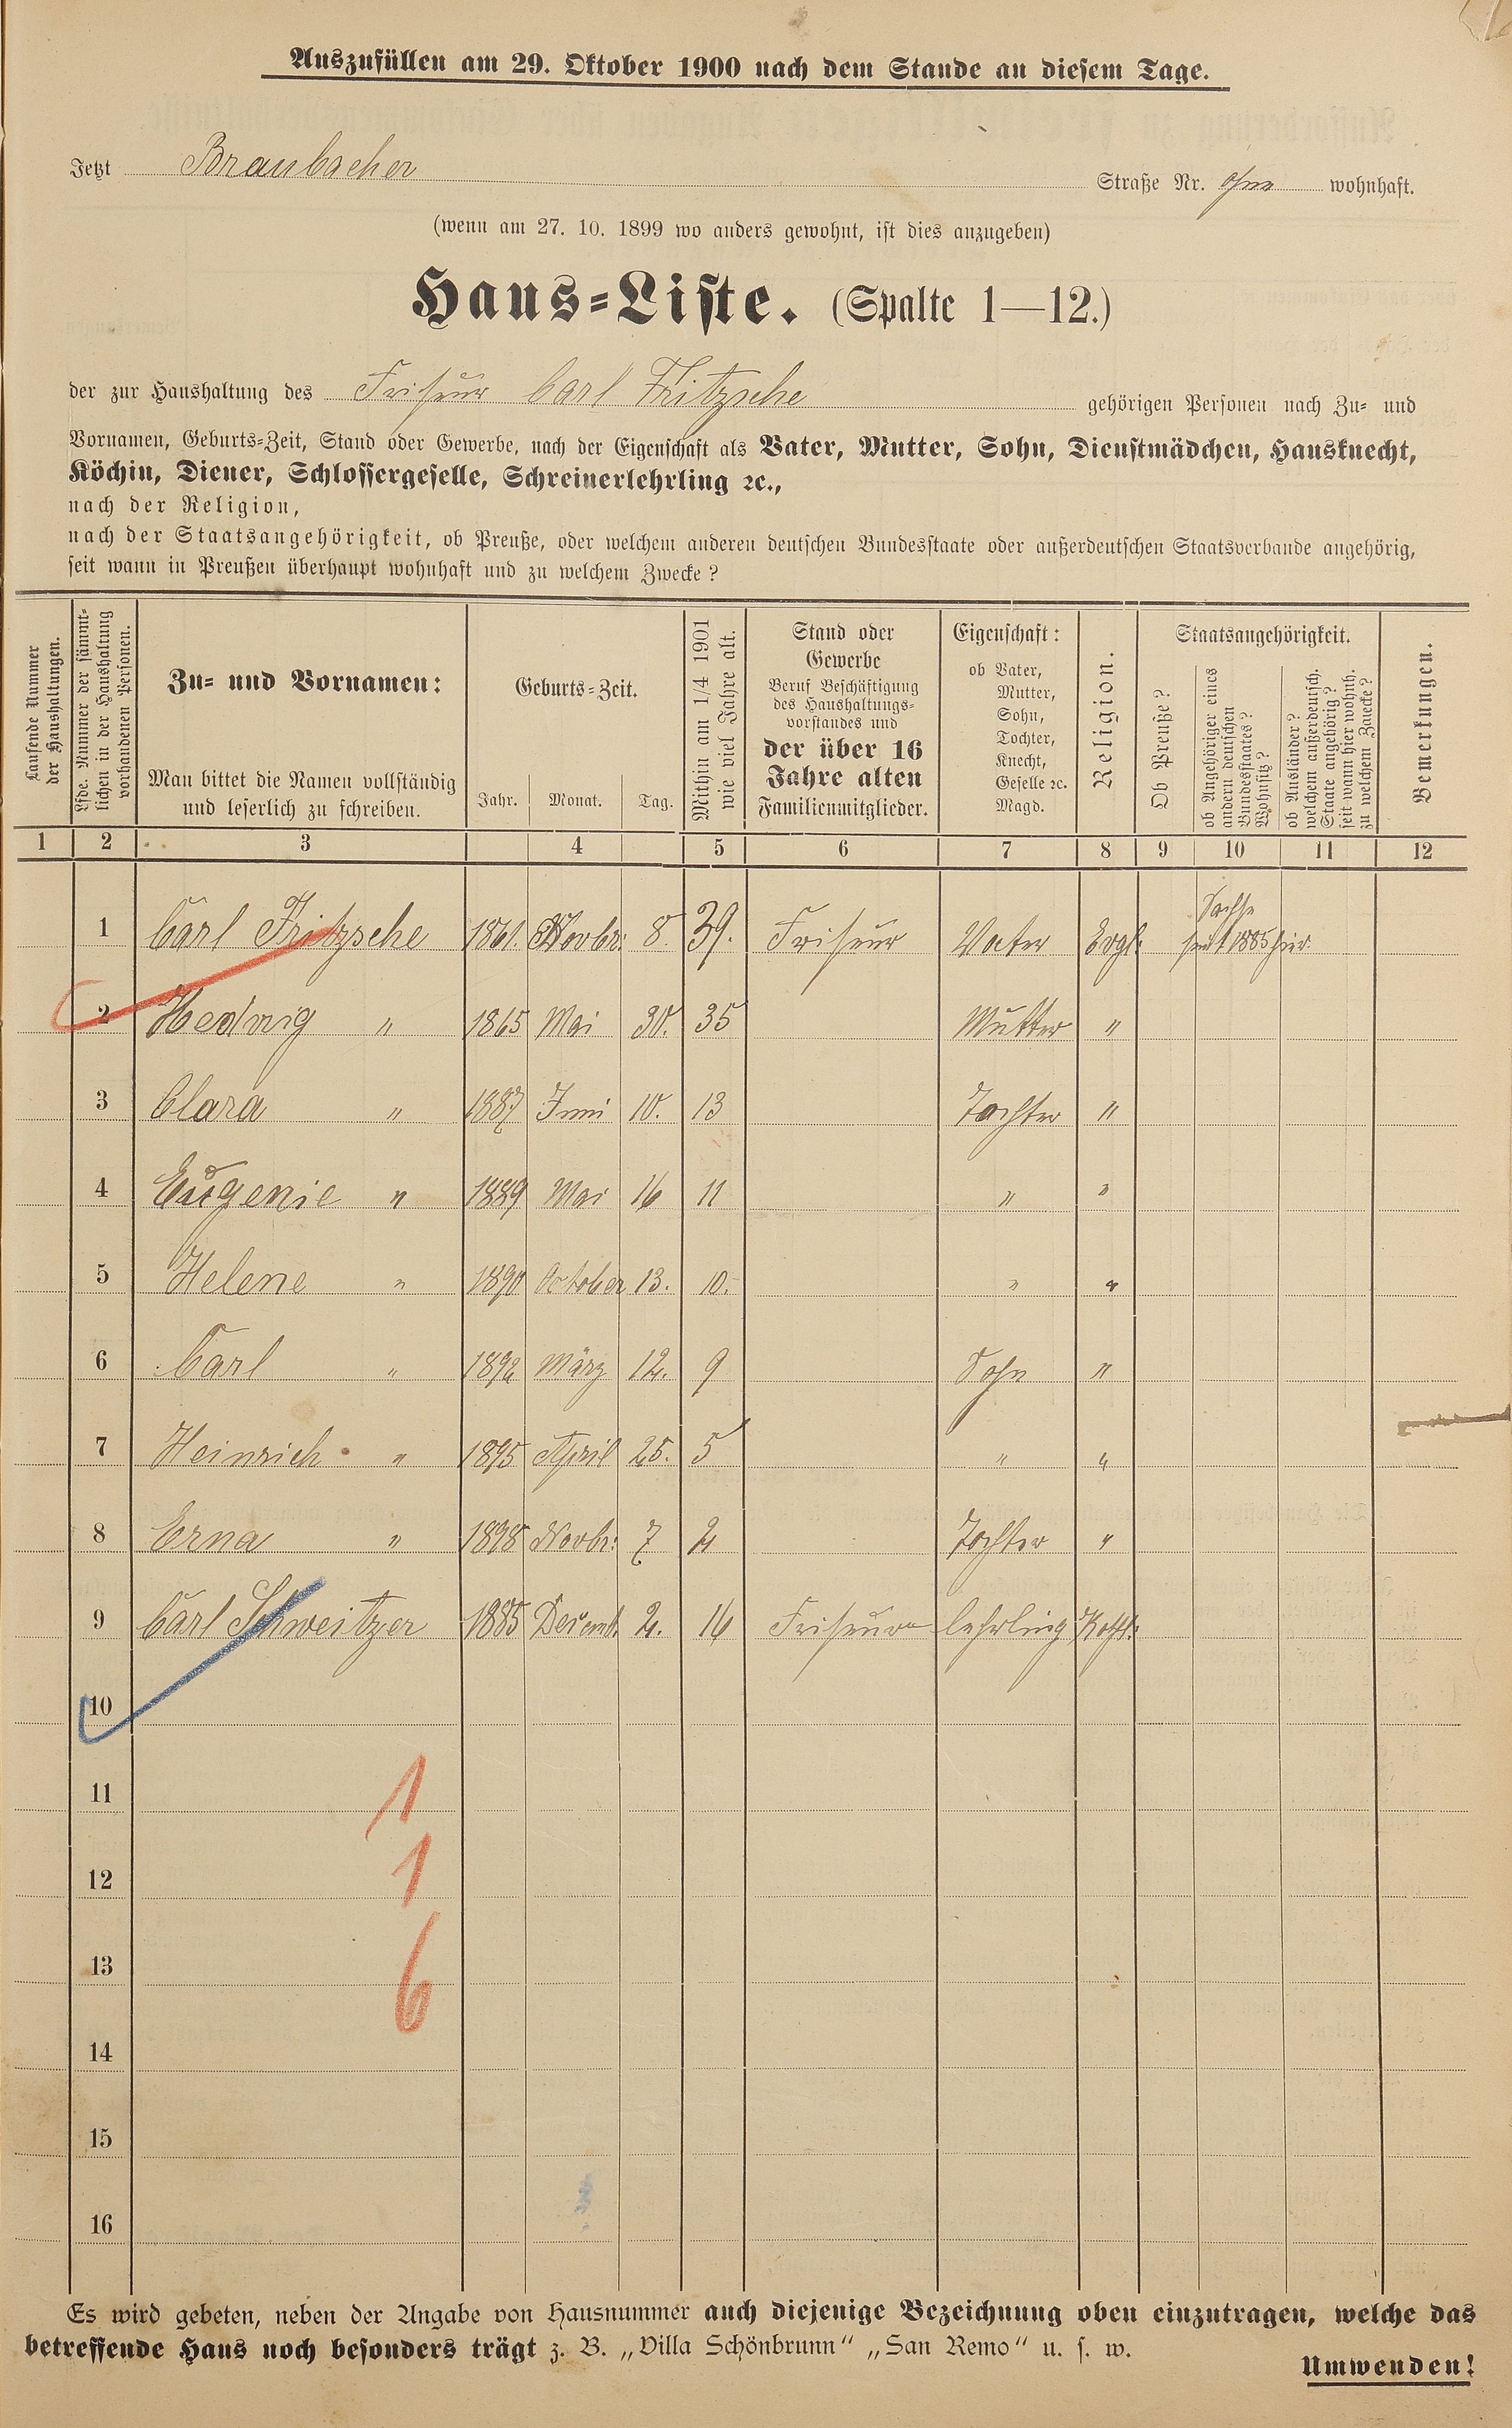 Auszufüllen am 29. Oktober 1900 nach dem Stande an diesem Tage.
Jetzt Braubacher Straße Nr. ohne wohnhaft.
(wenn am 27. 10. 1899 wo anders gewohnt, ist dies anzugeben)
Haus-Liste. (Spalte 1—12.)
der zur Haushaltung des Friseur Carl Fritzsche gehörigen Personen nach Zu- und
Vornamen, Geburts-Zeit, Stand oder Gewerbe, nach der Eigenschaft als Vater, Mutter, Sohn, Dienstmädchen, Hausknecht,
Köchin, Diener, Schlossergeselle, Schreinerlehrling ꝛc.,
nach der Religion,
nach der Staatsangehörigkeit, ob Preuße, oder welchem anderen deutschen Bundesstaate oder außerdeutschen Staatsverbande angehörig,
seit wann in Preußen überhaupt wohnhaft und zu welchem Zwecke?
Laufende Nummer
der Haushaltungen.
Lfde. Nummer der sämmt-
lichen in der Haushaltung
vorhandenen Personen.
Zu- und Vornamen:
Man bittet die Namen vollständig
und leserlich zu schreiben.
Geburts-Zeit.
Jahr. Monat. Tag.
Mithin am 1/4 1901
wie viel Jahre alt.
Stand oder
Gewerbe
Beruf Beschäftigung
des Haushaltungs-
vorstandes und
der über 16
Jahre alten
Familienmitglieder.
Eigenschaft:
ob Vater,
Mutter,
Sohn,
Tochter,
Knecht,
Geselle ꝛc.
Magd.
Religion.
Staatsangehörigkeit.
Ob Preuße?
ob Angehöriger eines
andern deutschen
Bundesstaates?
Wohnsitz?
ob Ausländer?
welchem außerdeutsch.
Staate angehörig?
seit wann hier wohnh.
zu welchem Zwecke?
Bemerkungen.
1 2 3 4 5 6 7 8 9 10 11 12
1 Carl Fritzsche 1861. Novbr: 8. 39. Friseur Vater Evgl. Sachse
seit 1885 hier.
2 Hedwig " 1865 Mai 30. 35 Mutter "
3 Clara " 1887 Juni 10. 13 Tochter "
4 Eugenie " 1889 Mai 16 11 " "
5 Helene " 1890 October 13. 10. " "
6 Carl " 1892 März 12. 9 Sohn "
7 Heinrich " 1895 April 25. 5 " "
8 Erna " 1898 Novbr: 7 2 Tochter "
9 Carl Schweitzer 1885 Decemb. 2. 16 Friseur lehrling Kath:
10
11 1
12 1
13 6
14
15
16
Es wird gebeten, neben der Angabe von Hausnummer auch diejenige Bezeichnung oben einzutragen, welche das
betreffende Haus noch besonders trägt z. B. „Villa Schönbrunn“ „San Remo“ u. s. w.
Umwenden!